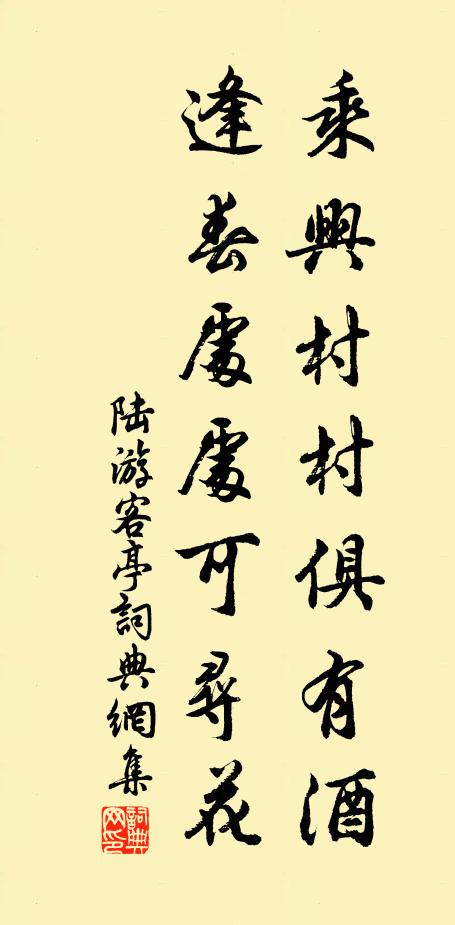 乘興村村俱有酒
逢春處處可尋花
陆游客亭詞典網集
詞典网印